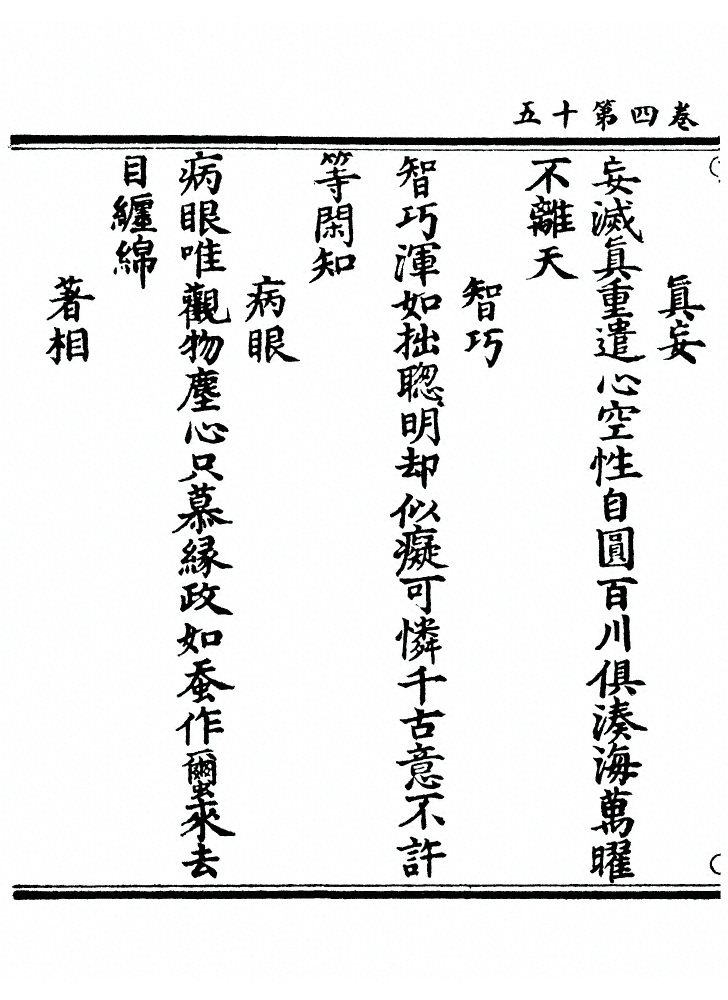 卷四第十五
眞妄
妄滅眞重遣心空性自圓百川俱湊海萬曜
不離天
智巧
智巧渾如拙聰明却似癡可憐千古意不許
等閑知
病眼
病眼唯觀物塵心只慕緣政如蚕作蠒來去
目纏綿
著相